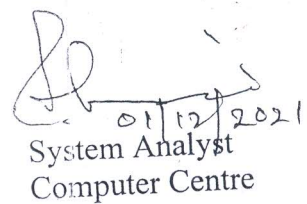 01/12/2021
System Analyst
Computer Centre